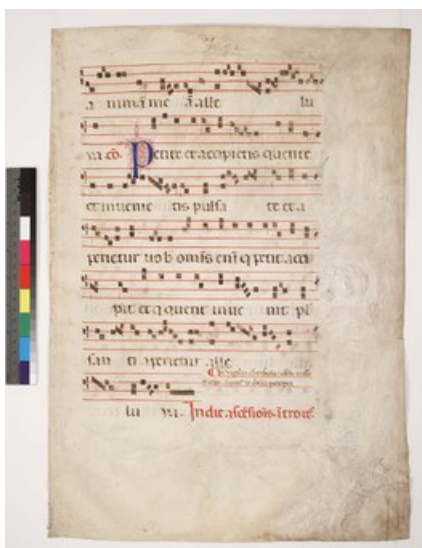 a nimā me ā alle lu
ya cō. Petite et accipietis querite
et invenie tis pulsa te et a
perietur vob omīs enī q petit acci
pit et q querit inve nit pl
san ti aperietur alle
lu ya. In die ascēsiōis ītroit̄